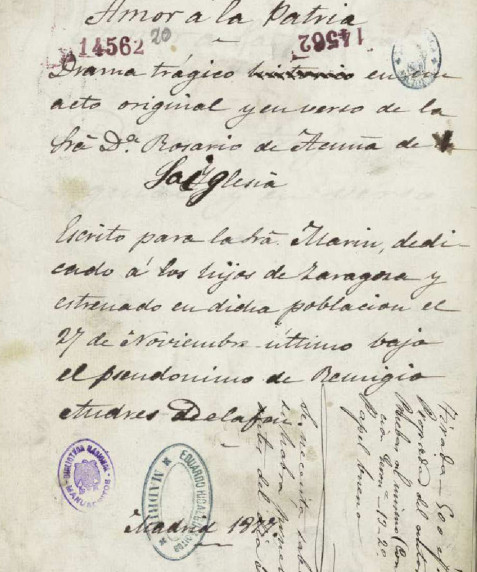 Amor á la Patria
14562 20
14562
Drama trágico historico en un
acto original y en verso de la
Srã Dª Rosario de Acuña de
Laiglesia
Escrito para la Srã. Marin, dedi-
cado á los hijos de Zaragoza y
estrenado en dicha poblacion el
27 de Noviembre último bajo
el pseudonimo de Remigio
Andres Delafon.
BIBLIOTECA NACIONAL
MANUSCRITOS
EDUARDO HIDALGO
MADRID
Madrid 1877
Tirada 500
Papel bueno
Se necesita